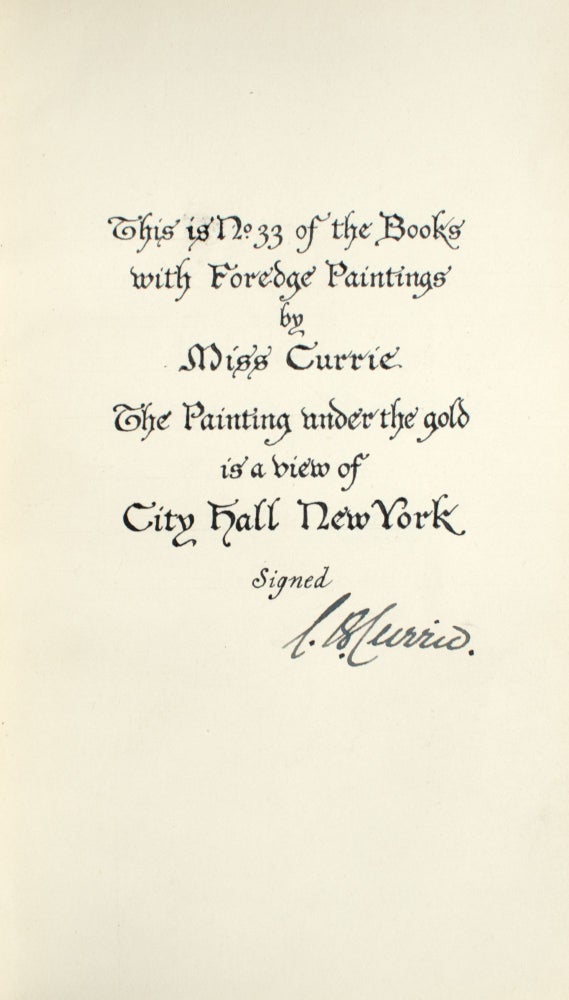 This is No 33 of the Books
with Foredge Paintings
by
Miss Currie
The Painting under the gold
is a view of
City Hall New York
Signed
C. B. Currie.